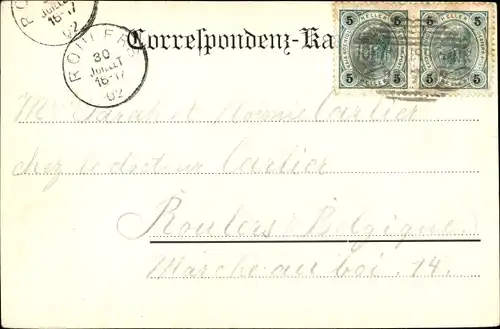 RO
JUILLET
16-17
02
ROULERS
30
JUILLET
16-17
02
Correspondenz-Ka
5 5 5 5
5 5 5 5
Sarah et Cartier
chez le docteur Carlier
Roulers (Belgique)
Marché au boi . 14.